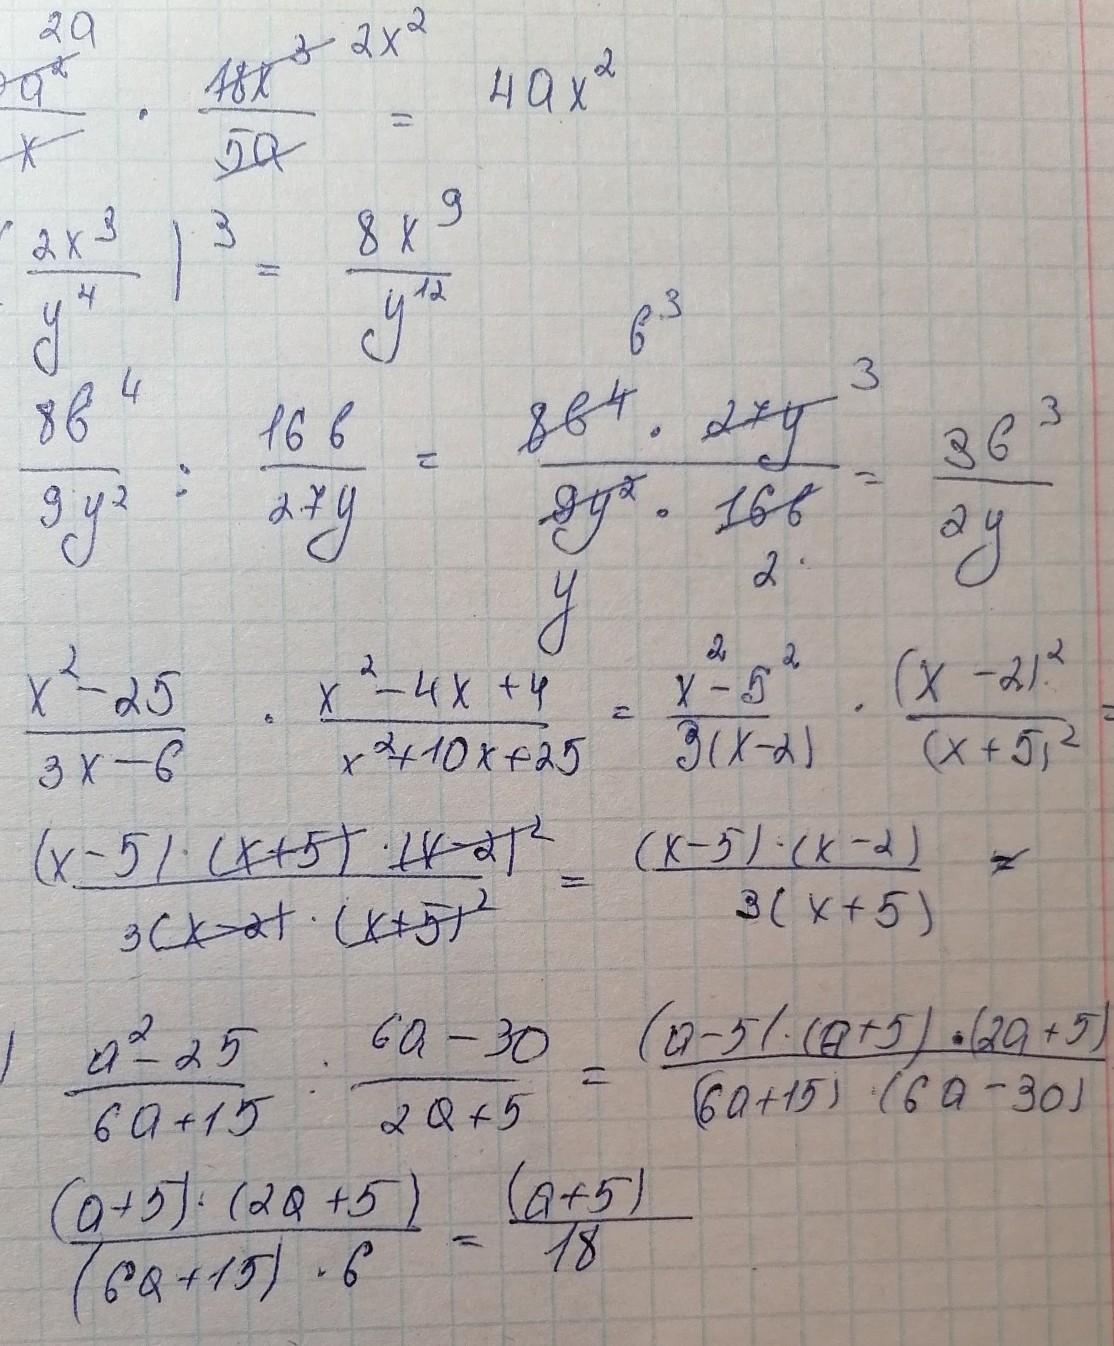 2a 2x²
a²/x · 18x³/5a = 4ax²
(2x³/y⁴)³ = 8x⁹/y¹²
8b⁴/9y² : 16b/27y = 8b⁴ · 27y/9y² · 16b = 3b³/2y
b³ 3
y 2
x²-25/3x-6 · x²-4x+4/x²+10x+25 = x²-5²/3(x-2) · (x-2)²/(x+5)² =
(x-5)·(x+5)·(x-2)²/3(x-2)·(x+5)² = (x-5)·(x-2)/3(x+5)
) a²-25/6a+15 : 6a-30/2a+5 = (a-5)·(a+5)·(2a+5)/(6a+15)·(6a-30)
(a+5)·(2a+5)/(6a+15)·6 = (a+5)/18